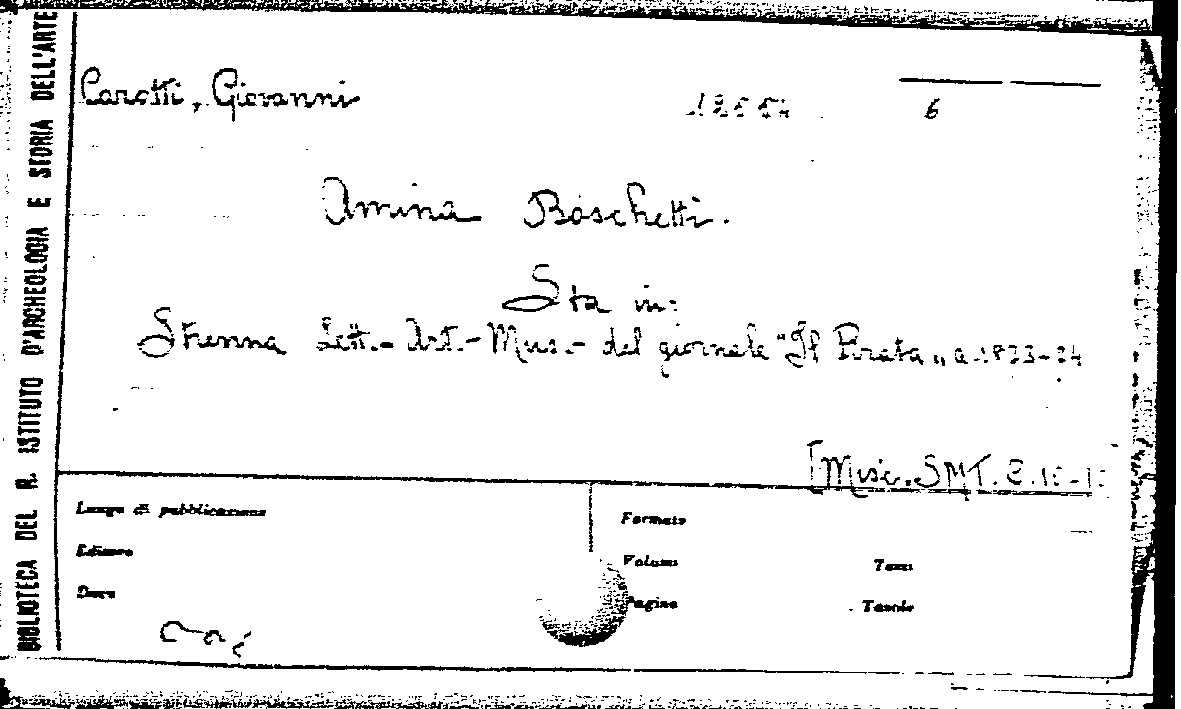 BIBLIOTECA DEL R. ISTITUTO D'ARCHEOLOGIA E STORIA DELL'ARTE
Carotti, Giovanni
6
Amina Boschetti.
Sta in:
Strenna Lett.- Art.- Mus.- del giornale "Il Pirata„ a.
[Misc. SMT.
Luogo di pubblicazione
Formato
Editore
Volumi
Tomi
Data
Pagine
Tavole